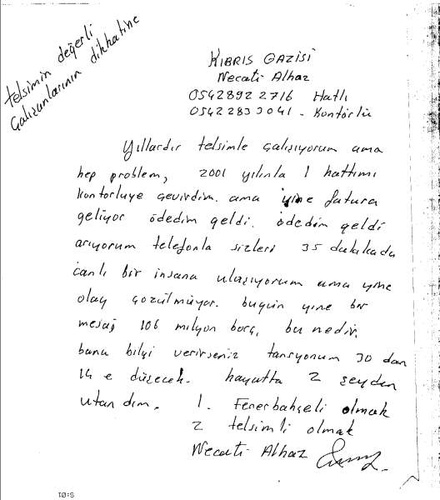 telsimin değerli
çalışanlarının dikkatine
KIBRIS GAZİSİ
Necati Alhaz
0542892 2716 Hatlı
0542 2833041 - Kontörlü
Yıllardır telsimle çalışıyorum ama
hep problem, 2001 yılında 1 hattımı
kontorluye çevirdim. ama yine fatura
geliyor ödedim geldi. ödedim geldi
arıyorum telefonla sizleri 35 dakikada
canlı bir insana ulaşıyorum ama yine
olay çözülmüyor. bugün yine bir
mesaj 106 milyon borç, bu nedir.
bana bilgi verirseniz tansiyonum 30 dan
14 e düşecek. hayatta 2 şeyden
utandım. 1. Fenerbahçeli olmak
2 telsimli olmak
Necati Alhaz